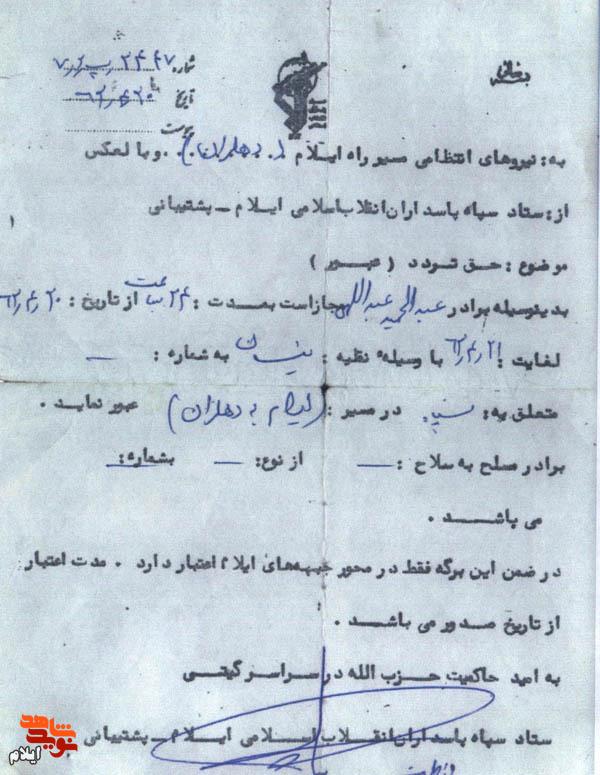 بسمه تعالی
شماره ۲۴۴۷
تاریخ ۶۲/۴/۲۰
پیوست
به: نیروهای انتظامی مسیر راه ایلام (به دهلران) و بالعکس
از: ستاد سپاه پاسداران انقلاب اسلامی ایلام ـ پشتیبانی
موضوع: حق تردد (عبور)
بدینوسیله برادر عبدالحمید عبداللهی مجاز است بمدت: ۲۴ ساعت از تاریخ: ۶۲/۴/۲۰
لغایت: ۶۲/۴/۲۱ با وسیله نقلیه: نیسان به شماره: —
متعلق به: سپاه در مسیر: (ایلام به دهلران) عبور نماید.
برادر مسلح به سلاح: — از نوع: — بشماره:
می باشد.
در ضمن این برگه فقط در محور جبهه‌های ایلام اعتبار دارد. مدت اعتبار
از تاریخ صدور می باشد.
به امید حاکمیت حزب الله در سراسر گیتی
ستاد سپاه پاسداران انقلاب اسلامی ایلام ـ پشتیبانی
نوید شاهد
ایلام